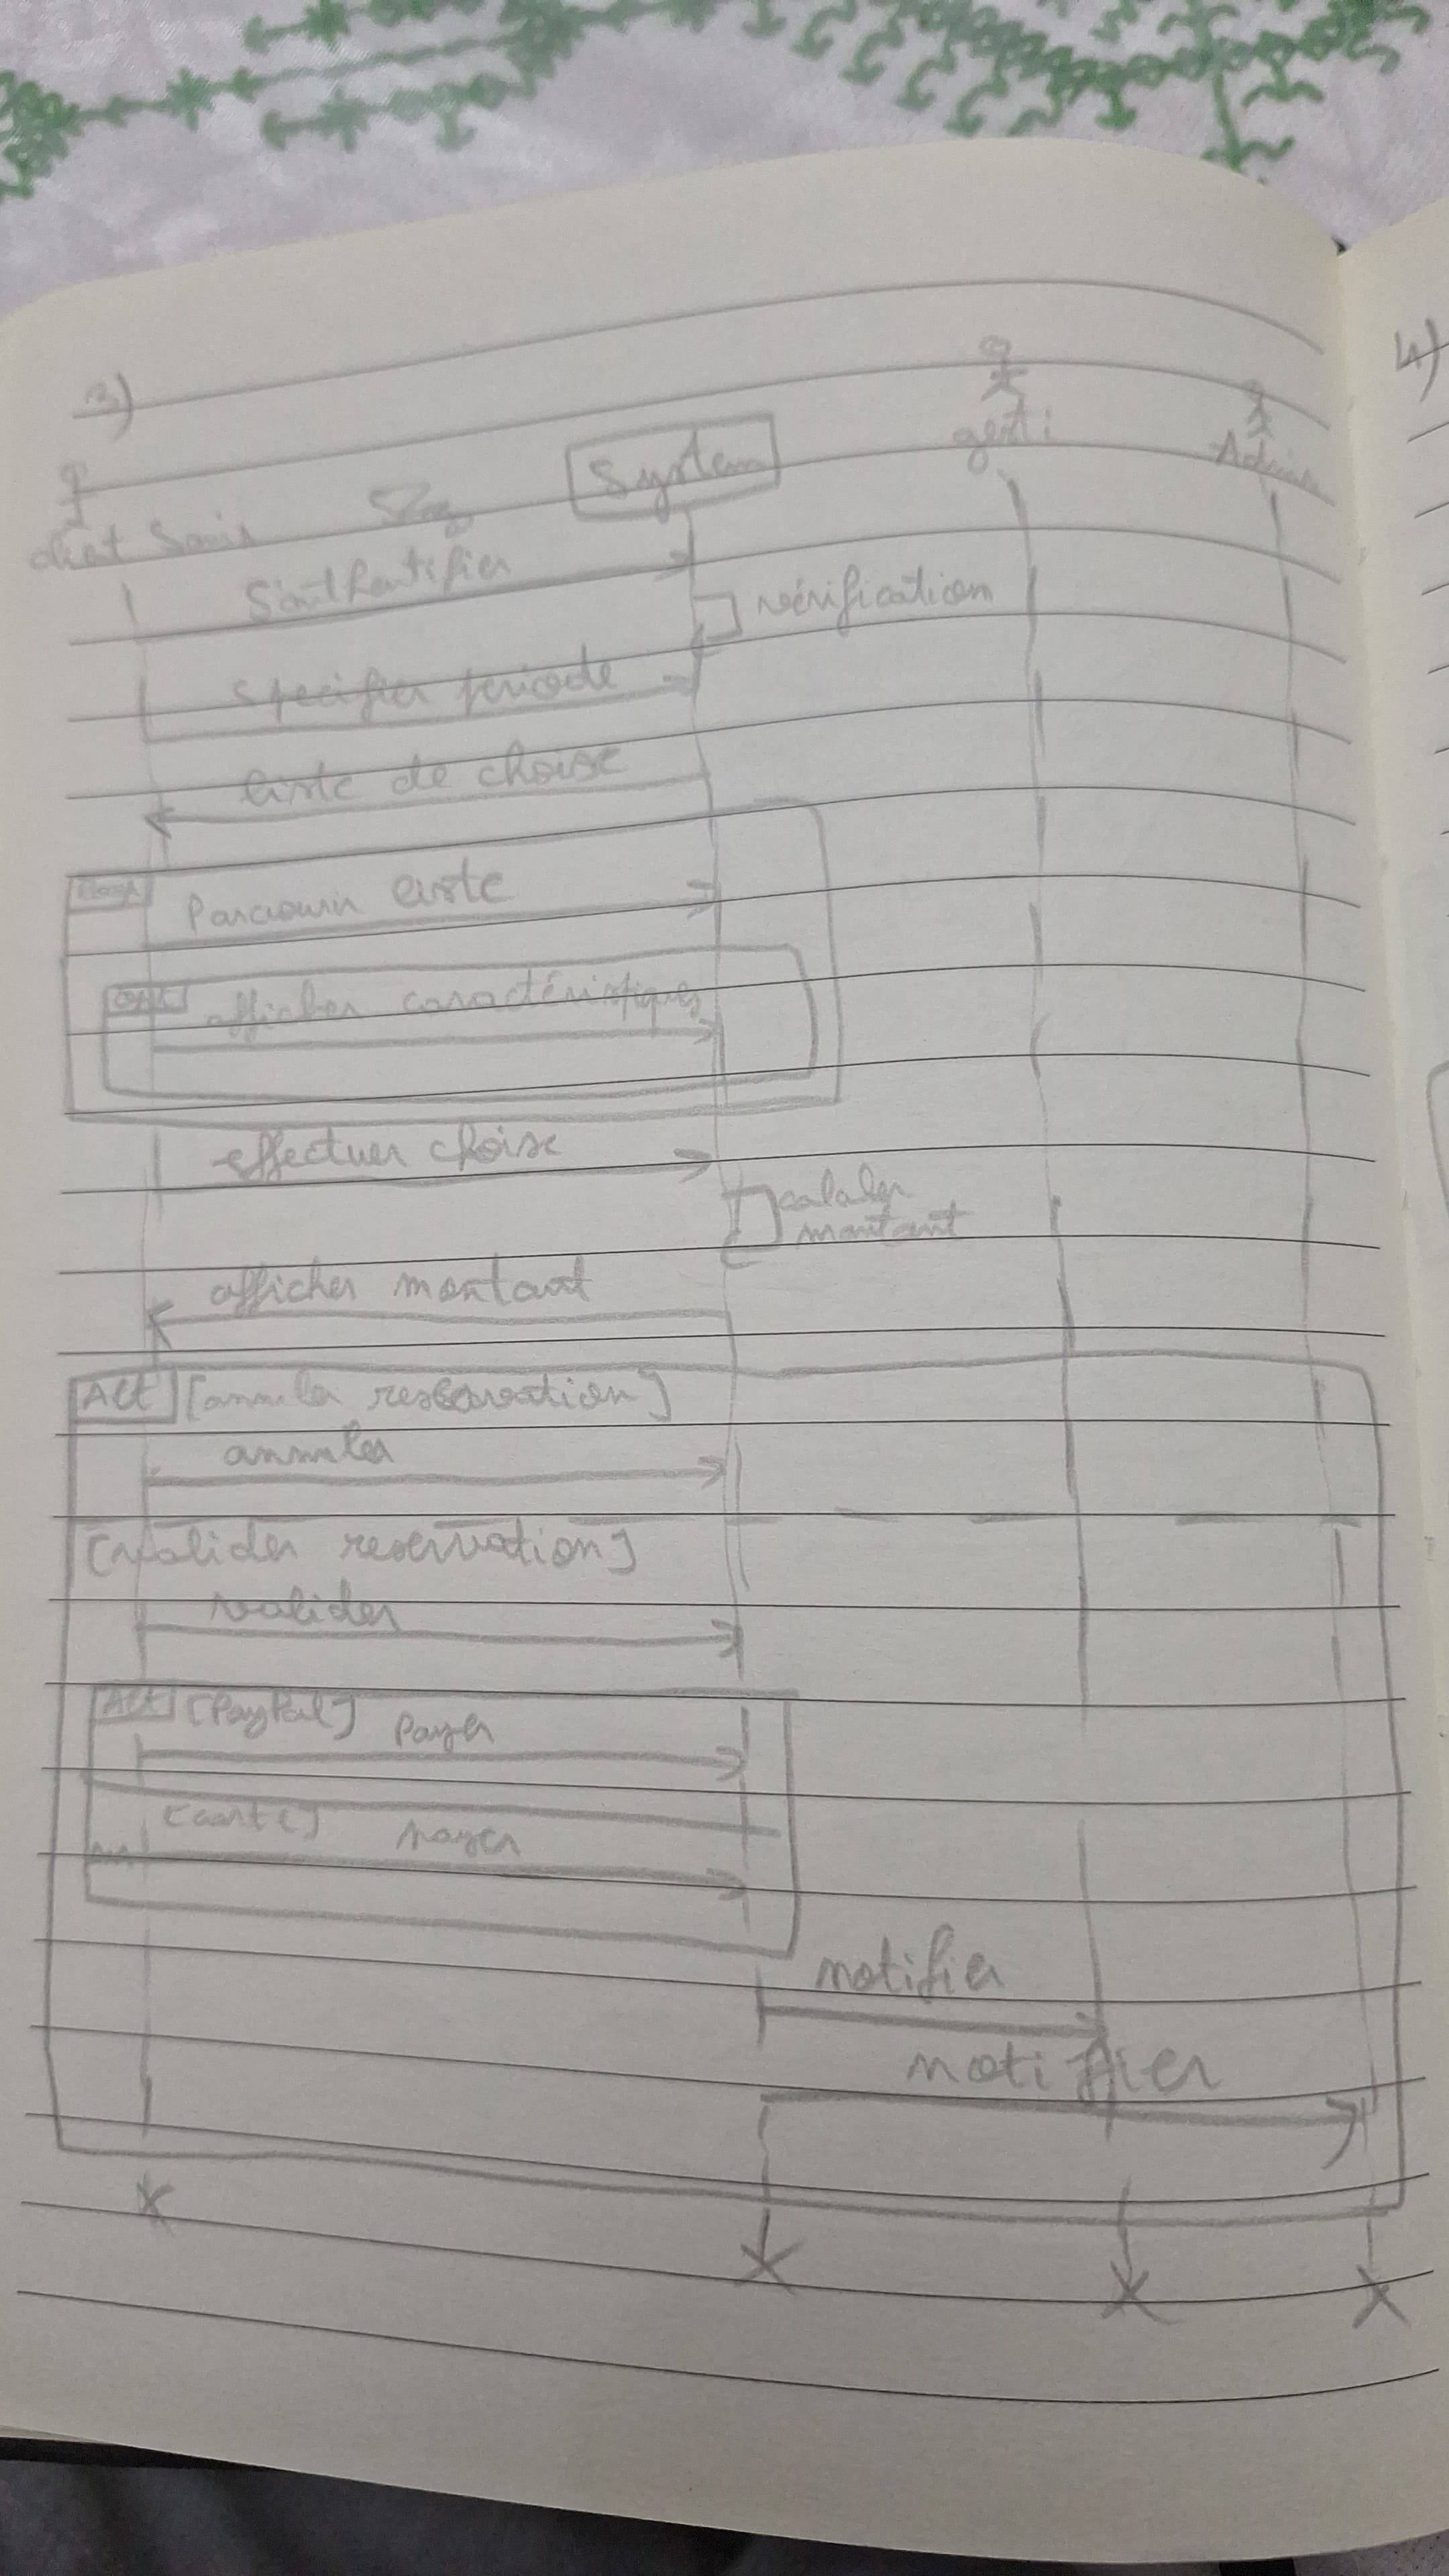 3)
4)
System
gesti
Admin
S'authentifier
vérification
specifier periode
liste de choise
Loop
Parcourir liste
Opt
afficher caractéristiques
effectuer choise
calculer
montant
afficher montant
Alt [annuler reservation]
annuler
[valider reservation]
valider
Alt [PayPal] Payer
[carte] Payer
notifier
notifier